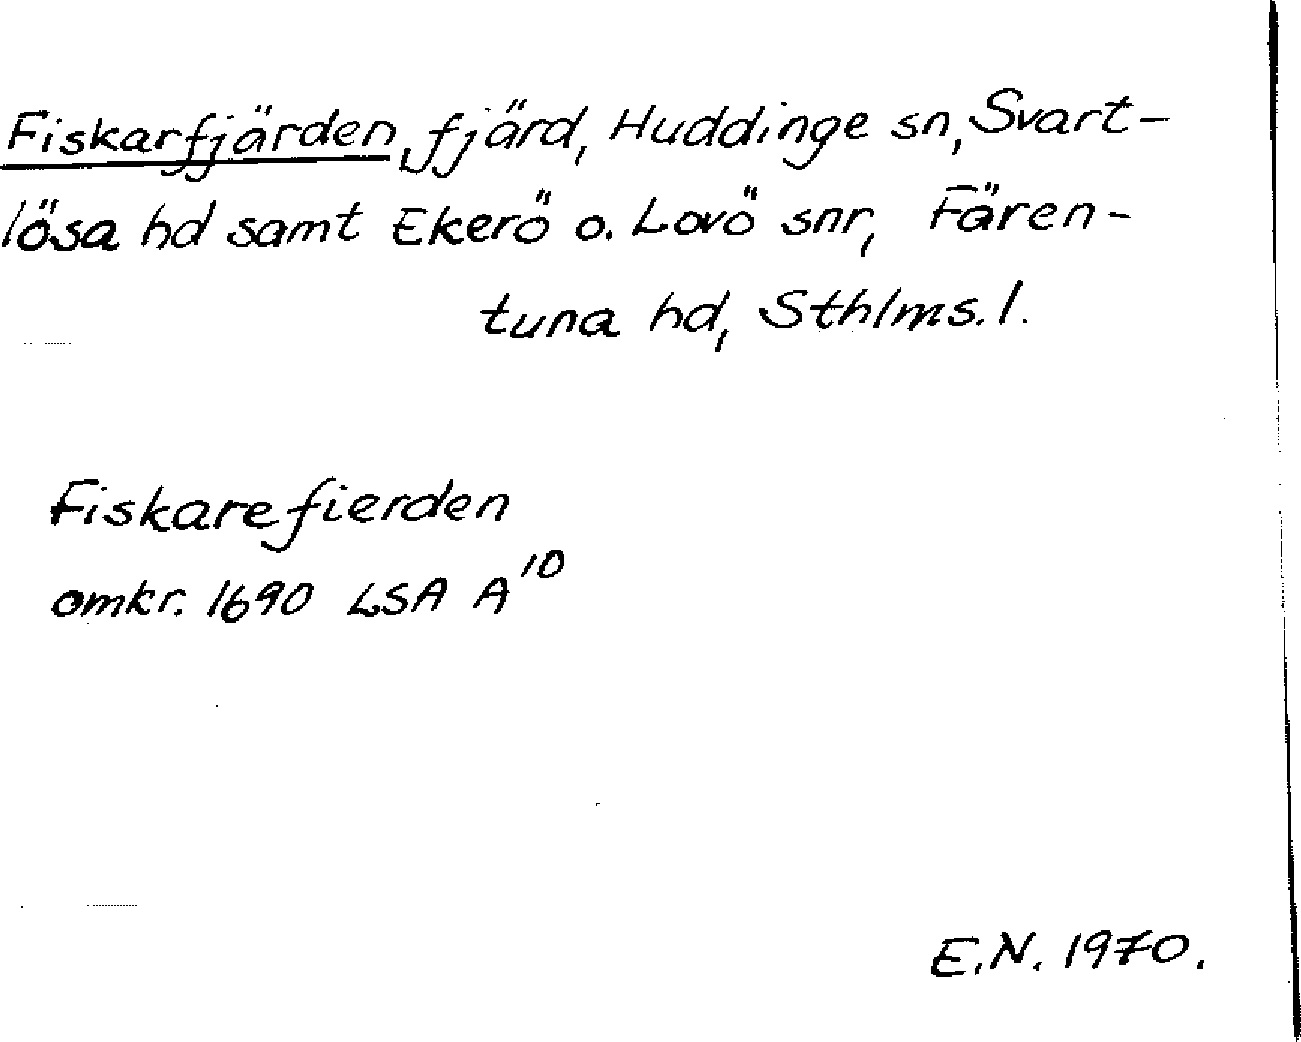 Fiskarfjärden, fjärd, Huddinge sn, Svart-
lösa hd samt Ekerö o. Lovö snr, Fären-
tuna hd, Sthlms. l.
Fiskarefierden
omkr. 1690 LSA A¹⁰
E.N. 1970.